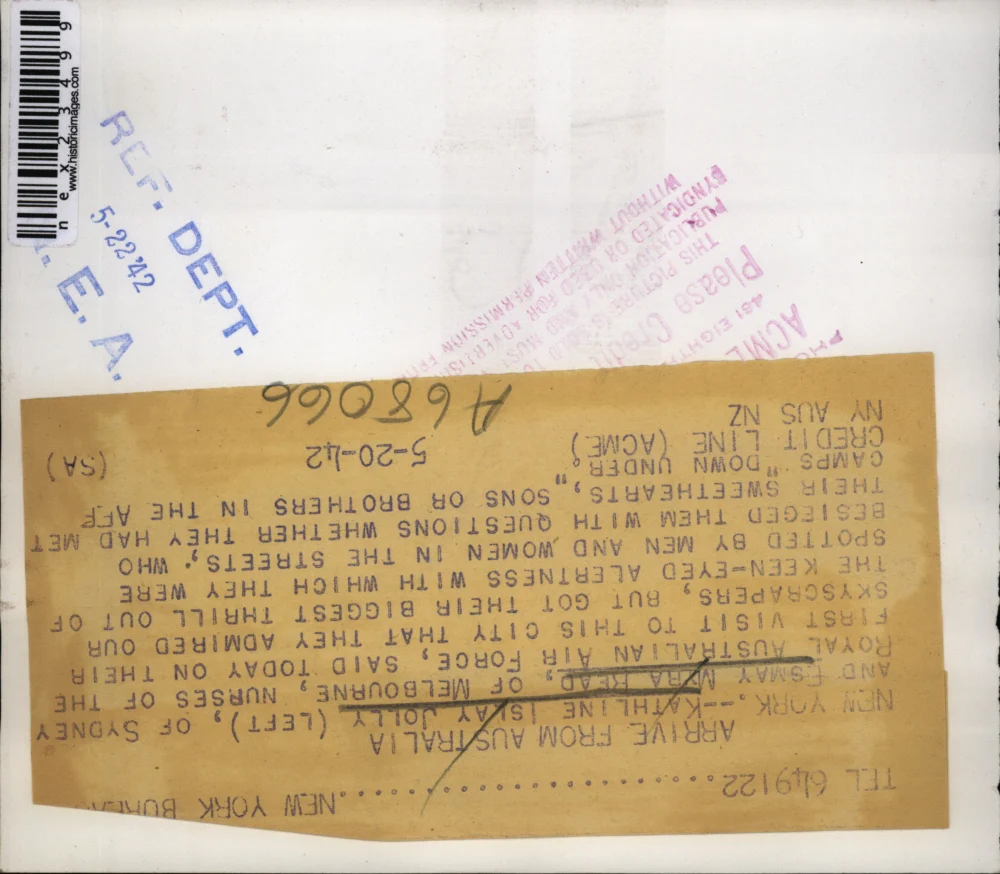 TEL 649122....................NEW YORK BUREAU
ARRIVE FROM AUSTRALIA
NEW YORK.--KATHLINE ISLAY JOLLY (LEFT), OF SYDNEY
AND ESMAY MERA READ, OF MELBOURNE, NURSES OF THE
ROYAL AUSTRALIAN AIR FORCE, SAID TODAY ON THEIR
FIRST VISIT TO THIS CITY THAT THEY ADMIRED OUR
SKYSCRAPERS, BUT GOT THEIR BIGGEST THRILL OUT OF
THE KEEN-EYED ALERTNESS WITH WHICH THEY WERE
SPOTTED BY MEN AND WOMEN IN THE STREETS, WHO
BESIEGED THEM WITH QUESTIONS WHETHER THEY HAD MET
THEIR SWEETHEARTS, "SONS OR BROTHERS IN THE AEF
CAMPS "DOWN UNDER."
CREDIT LINE (ACME) 5-20-42 (SA)
NY AUS NZ
A68066
ACME
Please Credit
THIS PICTURE IS
PUBLICATION ONLY AND MUST
SYNDICATED OR USED FOR ADVERTISING
WITHOUT WRITTEN PERMISSION FROM
REF. DEPT.
5-22-42
E. A.
nex23499
www.historicimages.com